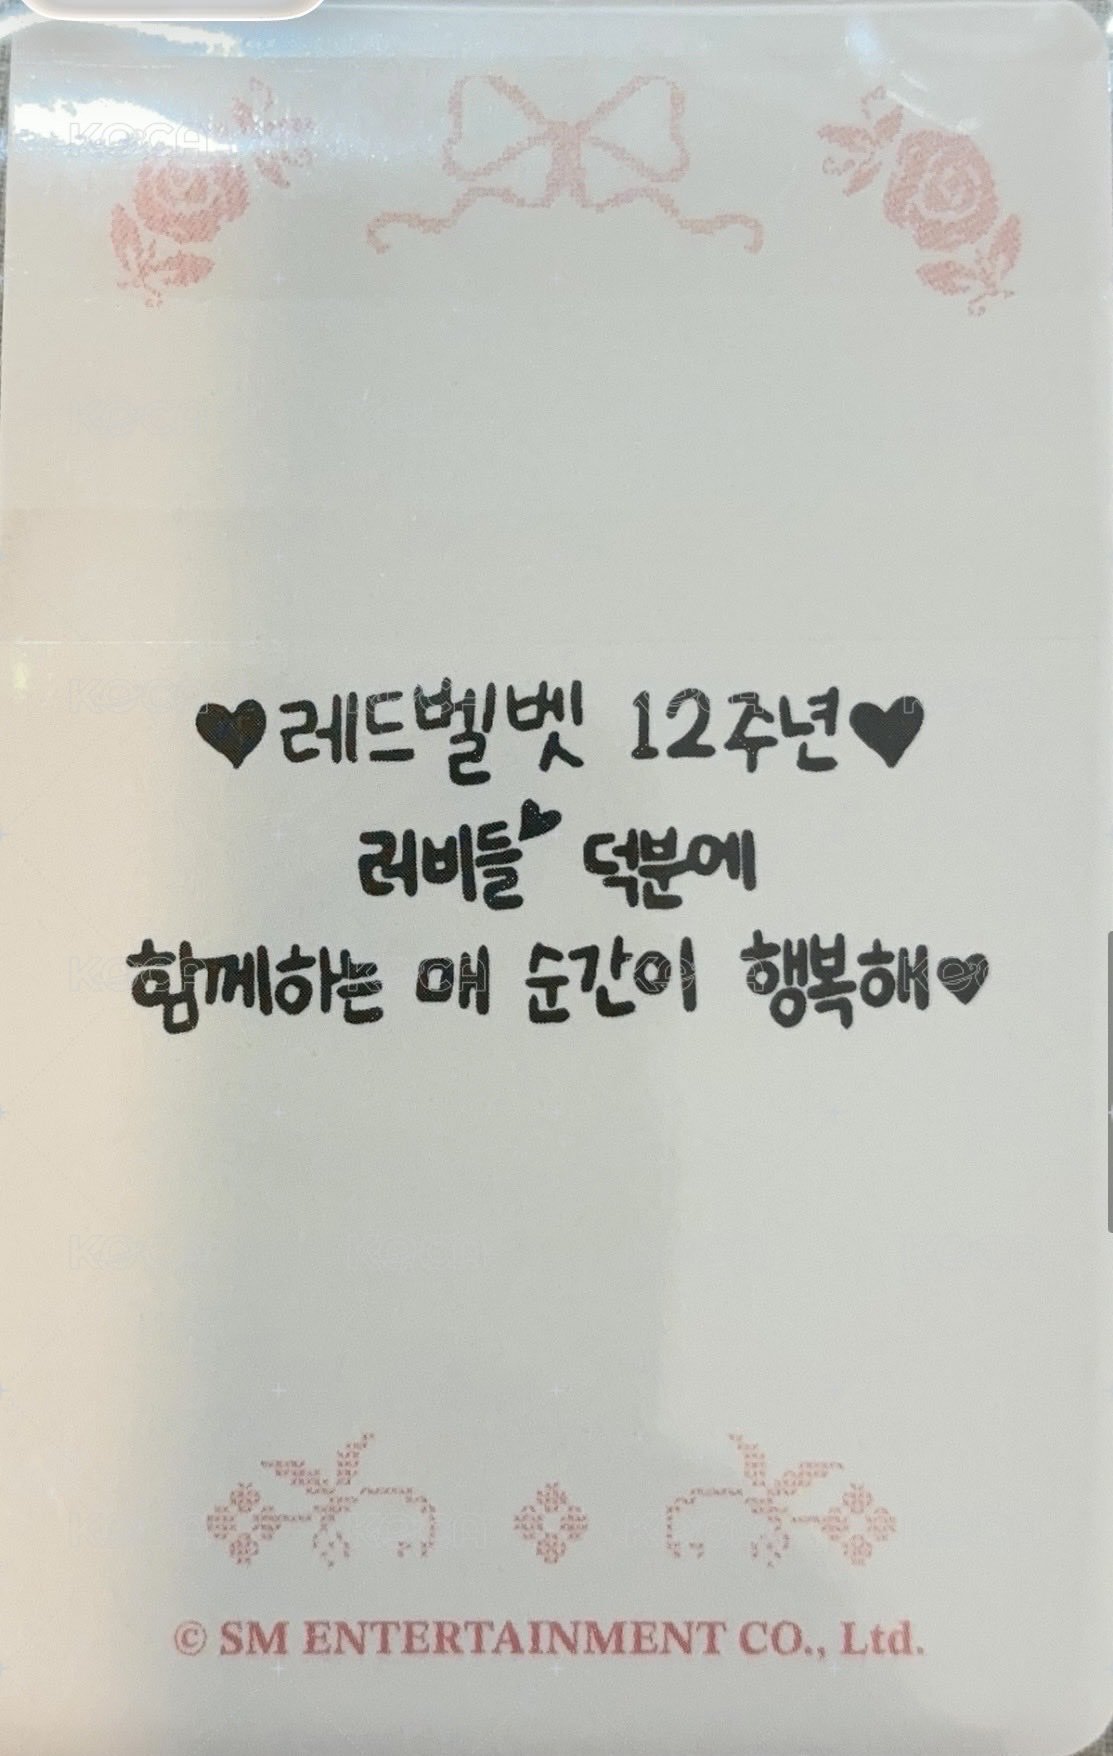 ♥레드벨벳 12주년♥
러비들♥ 덕분에
함께하는 매 순간이 행복해♥
© SM ENTERTAINMENT CO., Ltd.
KOCA